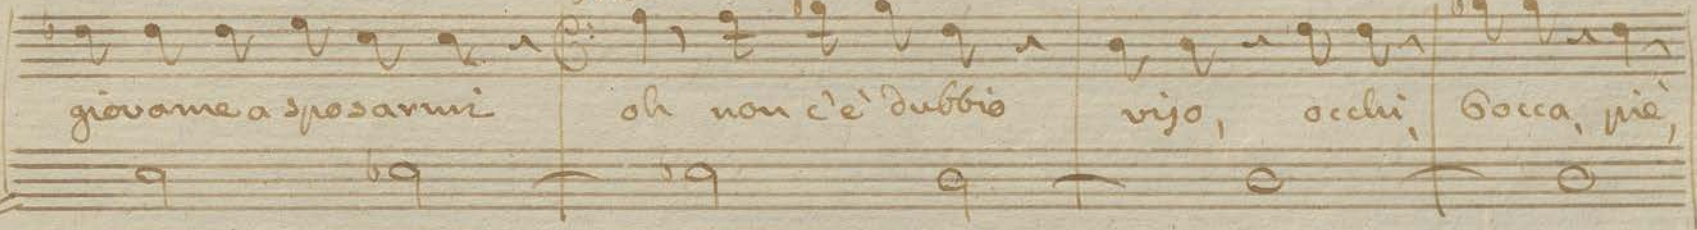 giovame a sposarmi oh non c'è dubbio viso, occhi, bocca, piè,